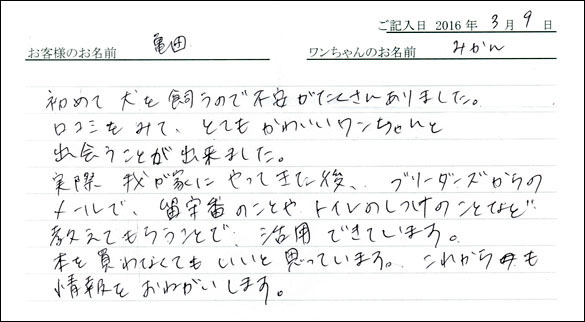 ご記入日 2016年 3月 9日
お客様のお名前 亀田 ワンちゃんのお名前 みかん
初めて犬を飼うので不安がたくさんありました。
口コミをみて、とてもかわいいワンちゃんと
出会うことが出来ました。
実際 我が家にやってきた後、ブリーダーズからの
メールで、留守番のことや トイレのしつけのことなど
教えてもらうことで、活用できています。
本を買わなくてもいいと思っています。これからも
情報を おねがいします。